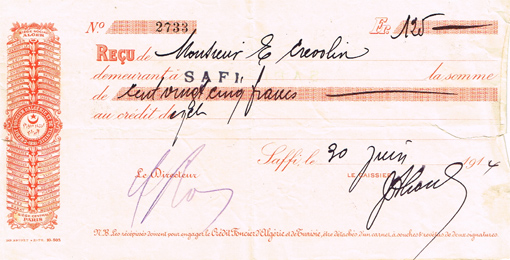 SIÈGE SOCIAL
ALGER
No 2733 Fr. 125
REÇU de Monsieur E Crevolin
demeurant à SAFI la somme
de cent vingt cinq francs
au crédit de
Saffi, le 30 Juin 1914
Le Directeur LE CAISSIER
PARIS
N.B. Les récépissés devront pour engager le Crédit Foncier d'Algérie et de Tunisie, être détachés d'un carnet à souches & revêtus de deux signatures.